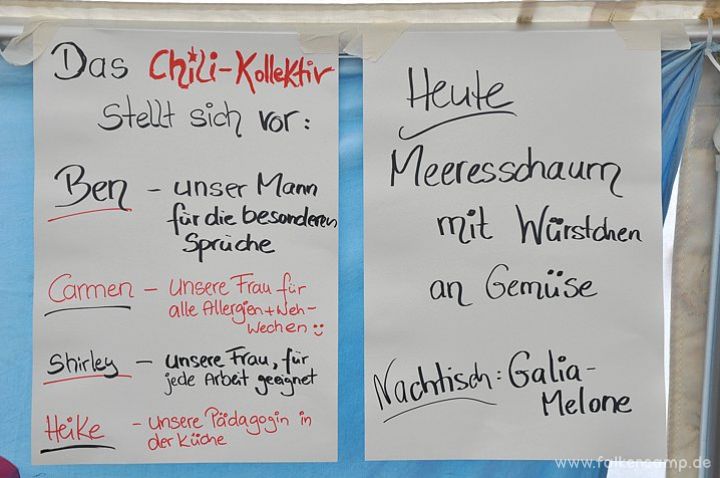 Das Chili-Kollektiv
stellt sich vor:
Ben - unser Mann
für die besonderen
Sprüche
Carmen - unsere Frau für
alle Allergien+Weh-
Wechen
Shirley - unsere Frau, für
jede Arbeit geeignet
Heike - unsere Pädagogin in
der Küche
Heute
Meeresschaum
mit Würstchen
an Gemüse
Nachtisch: Galia-
Melone
www.falkencamp.de